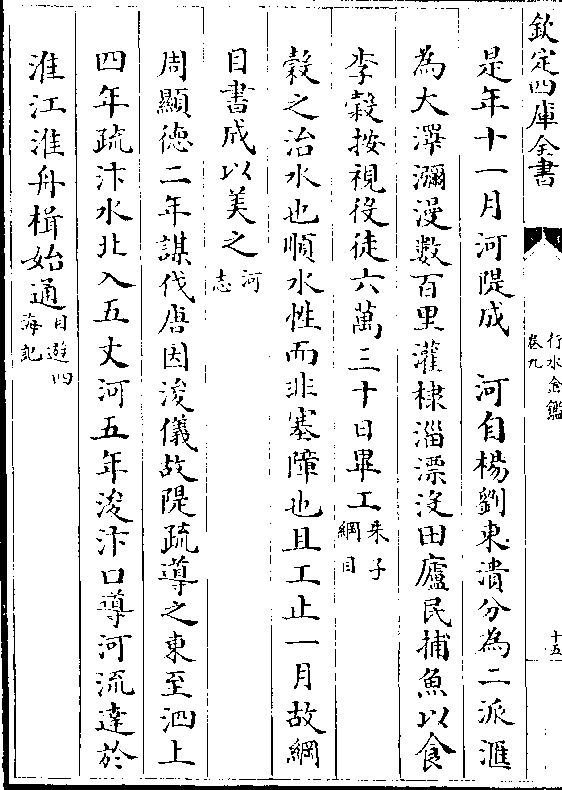 欽定四庫全書
行水金鑑
卷九
十五
是年十一月河隄成 河自楊劉東潰分為二派滙
為大澤瀰漫數百里灌棣淄漂沒田廬民捕魚以食
李穀按視役徒六萬三十日畢工朱子
綱目
穀之治水也順水性而非塞障也且工止一月故綱
目書成以美之河
志
周顯德二年謀伐唐因浚儀故隄疏導之東至泗上
四年疏汴水北入五丈河五年浚汴口導河流達於
淮江淮舟楫始通目遊四
海記